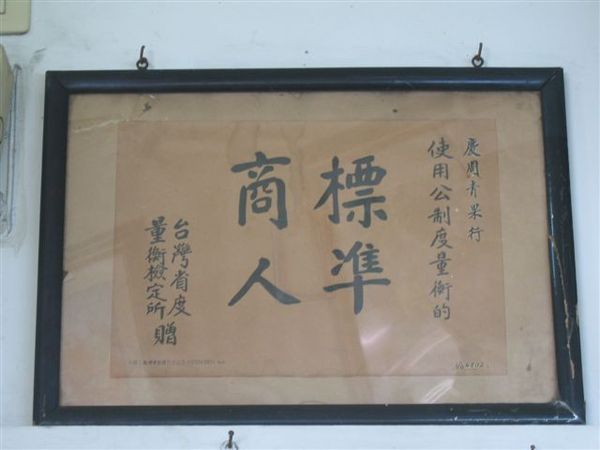 慶周青果行
使用公制度量衡的
標準
商人
台灣省度
量衡檢定所贈